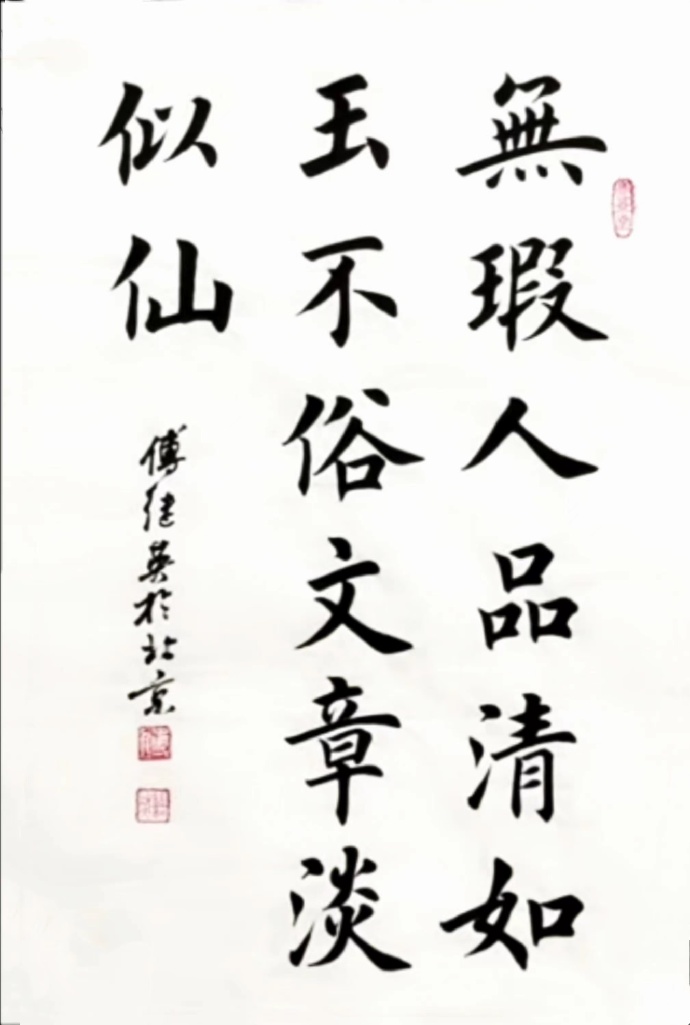 無瑕人品清如
玉不俗文章淡
似仙
傅继英於北京